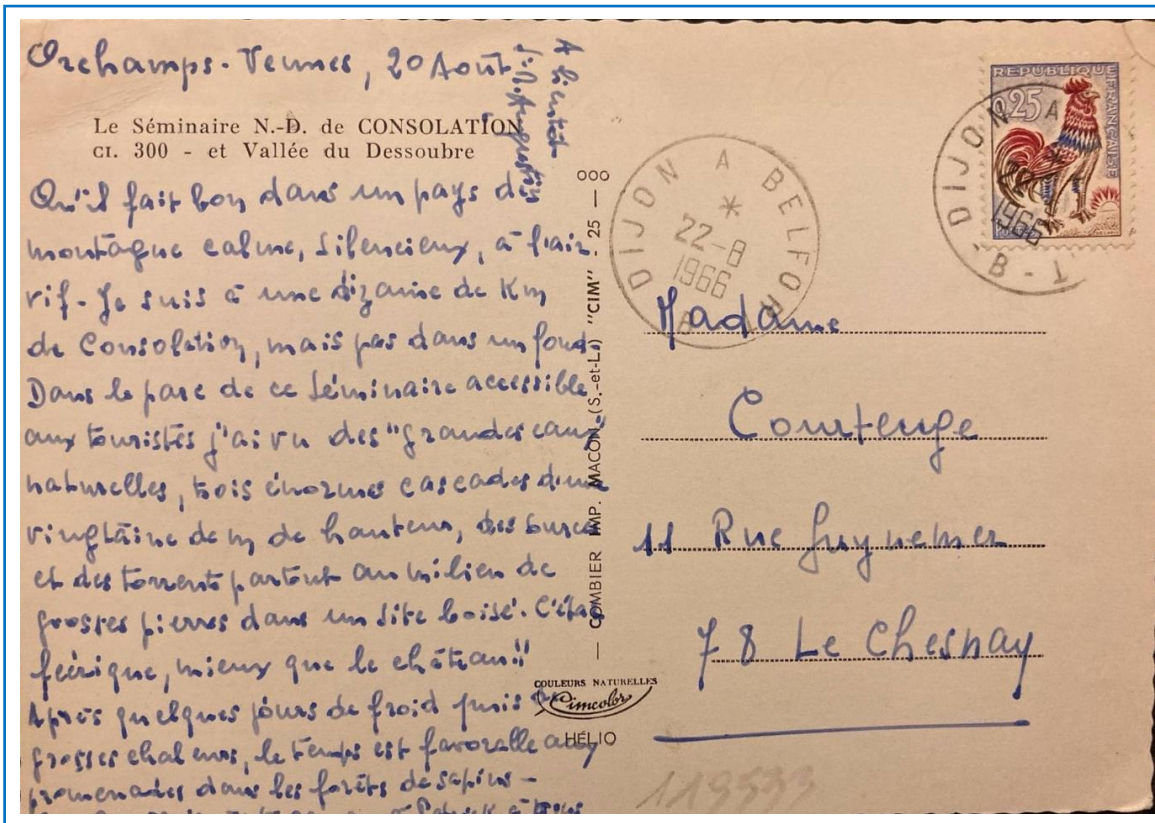 Orchamps-Vennes, 20 Août
A bientôt
Le Séminaire N.-D. de CONSOLATION
CI. 300 - et Vallée du Dessoubre
Qu'il fait bon dans un pays de
montagne calme, silencieux, à l'air
vif - Je suis à une dizaine de Km
de Consolation, mais pas dans un fond.
Dans le parc de ce Séminaire accessible
aux touristes j'ai vu des "grandes eaux"
naturelles, trois énormes cascades d'une
vingtaine de m de hauteur, des
et des torrents partout au milieu de
grosses pierres dans un site boisé. C'était
féérique, mieux que le château!!
Après quelques jours de froid puis de
grosses chaleurs, le temps est favorable aux
promenades dans les forêts de sapins -
à Patrick à tous
000
— COMBIER IMP. MACON (S.-et-L.) "CIM" - 25 —
COULEURS NATURELLES
Cimcolor
HÉLIO
DIJON A BELFORT
*
22-8
1966
REPUBLIQUE FRANÇAISE
0,25
DIJON A
22
1966
- B - T
Madame
Courtenge
11 Rue Guynemer
78 Le Chesnay
119533